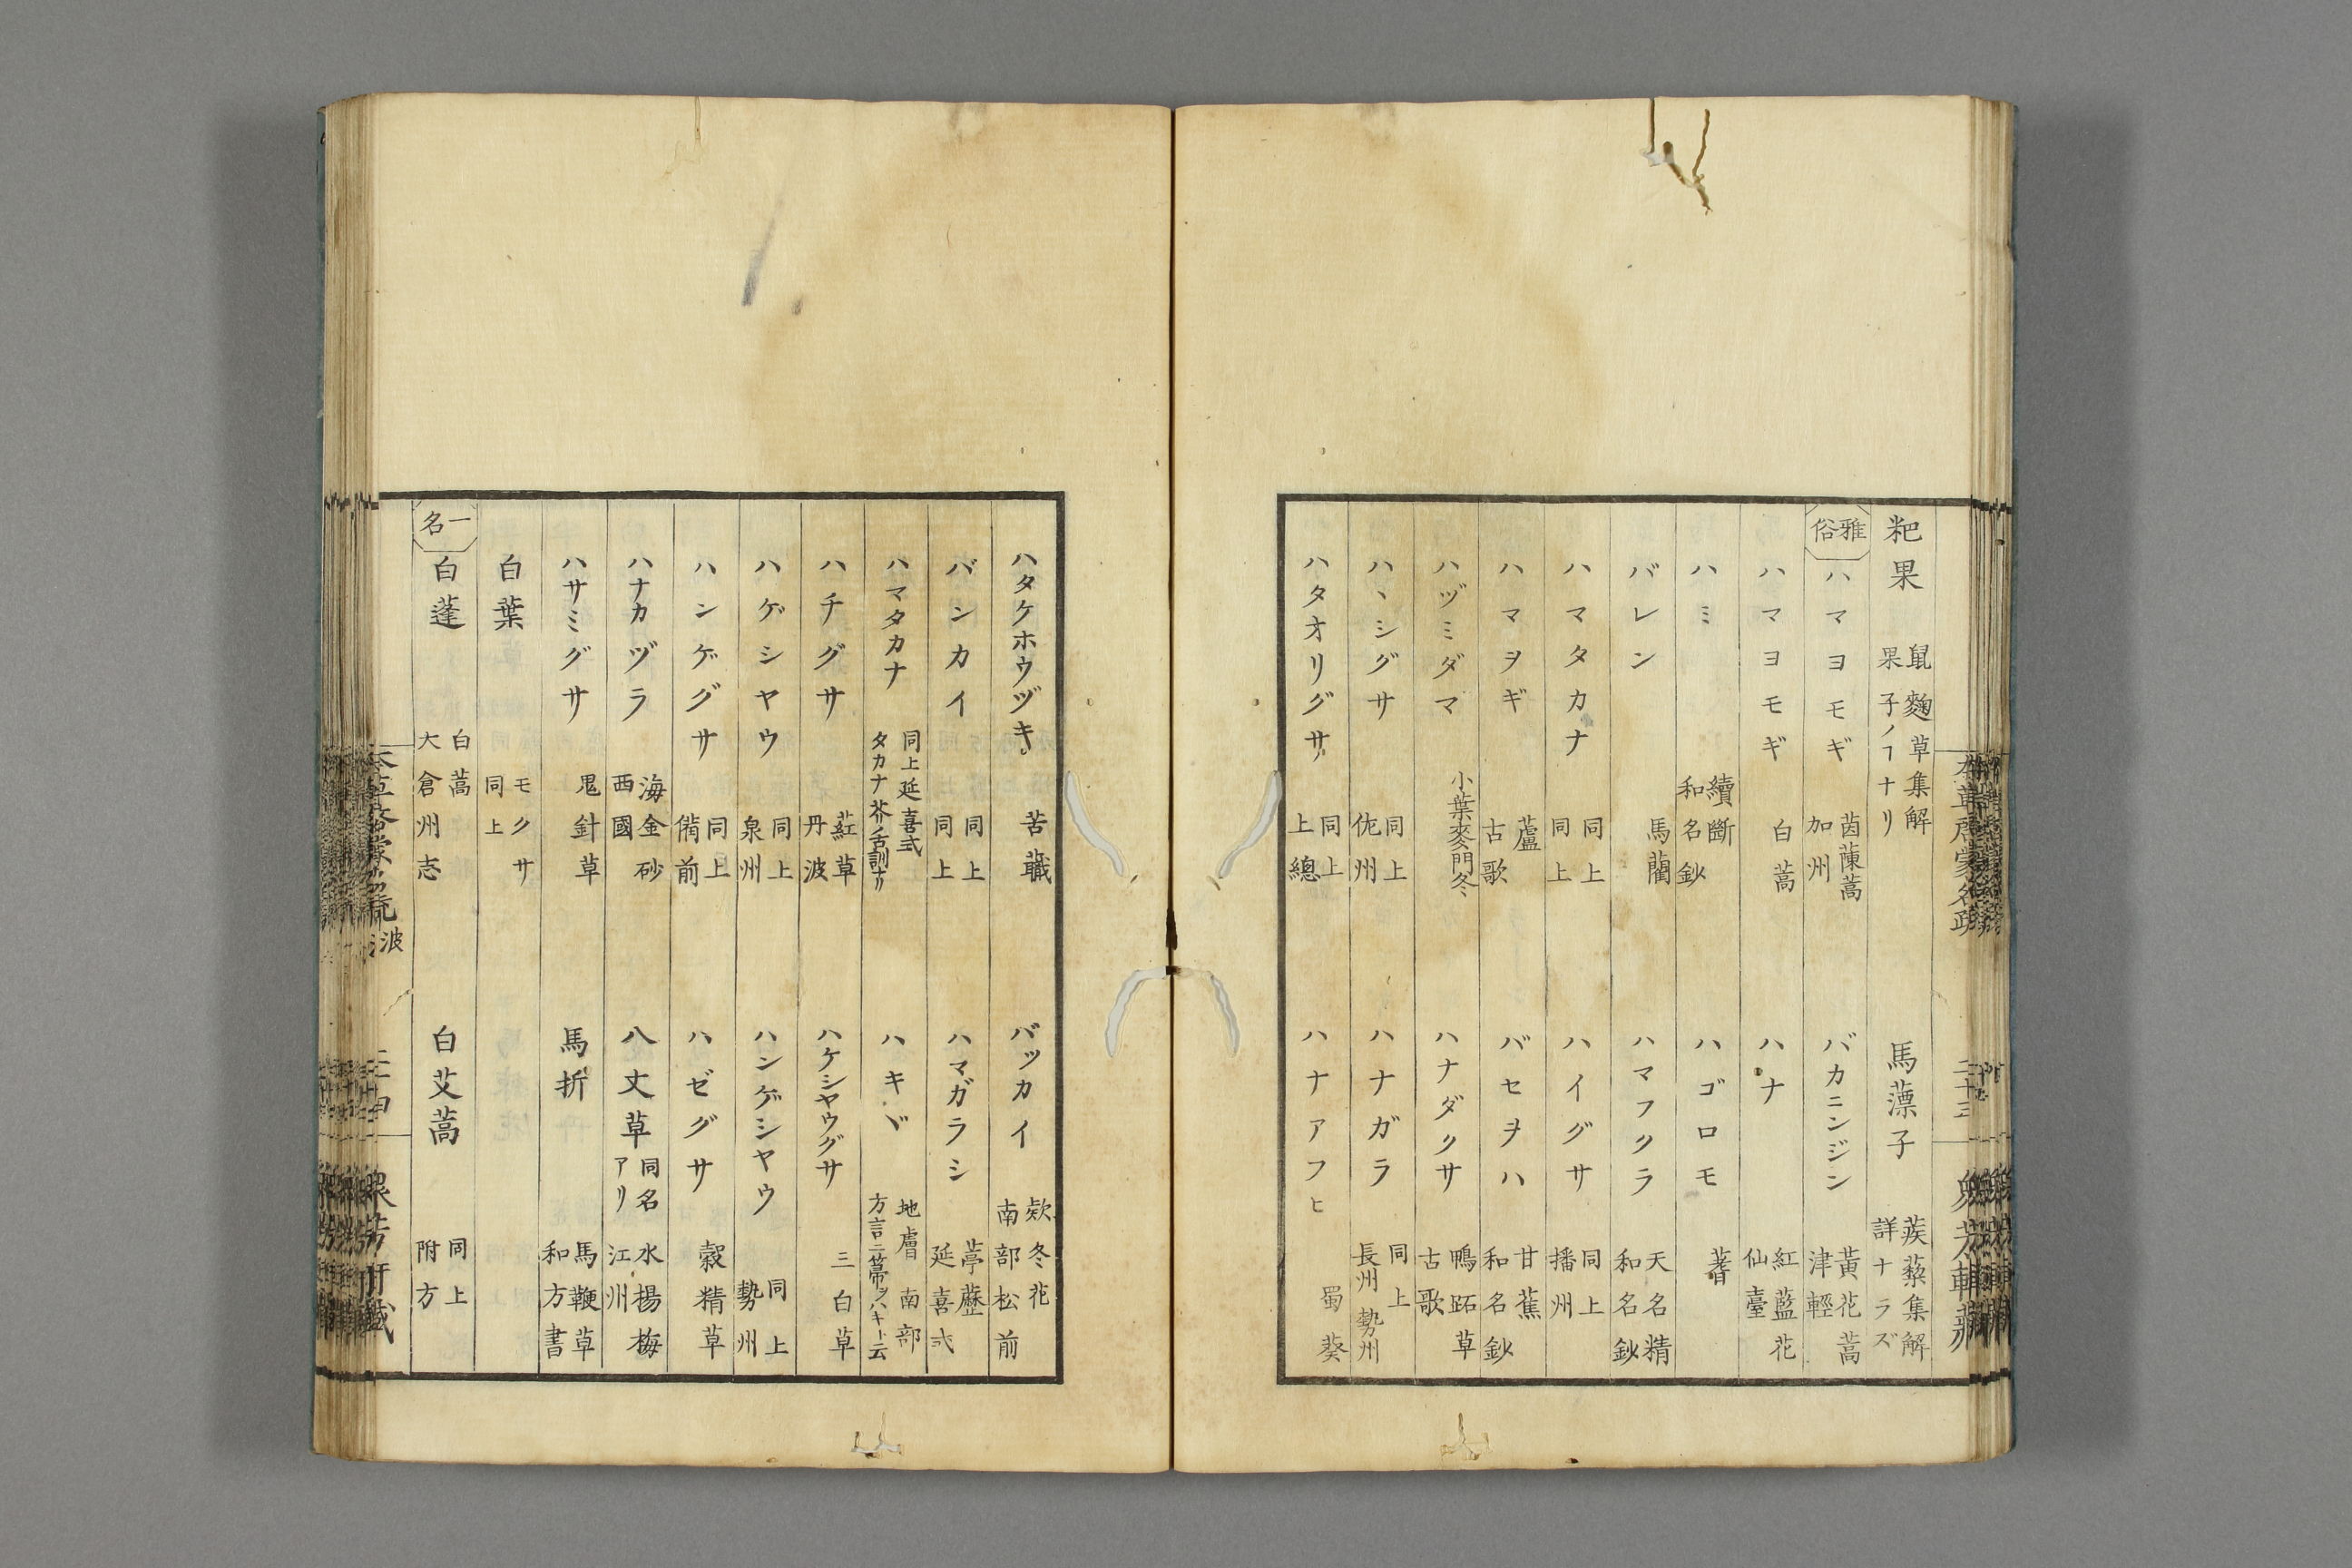 粑果 鼠麴草集解果子ノヿナリ 馬薸子 蒺蔾集解詳ナラズ
雅俗 ハマヨモギ 茵蔯蒿加州 バカニンジン 黃花蒿津輕
ハマヨモギ 白蒿 ハナ 紅藍花仙臺
ハミ 續斷和名鈔 ハゴロモ 蓍
バレン 馬藺 ハマフクラ 天名精和名鈔
ハマタカナ 同上同上 ハイグサ 同上播州
ハマヲギ 蘆古歌 バセヲハ 甘蕉和名鈔
ハヅミダマ 小葉麥門冬 ハナダクサ 鴨跖草古歌
ハヽシグサ 同上佗州 ハナガラ 同上長州勢州
ハタオリグサ 同上上總 ハナアフヒ 蜀葵
ハタケホウヅキ 苦蘵 バッカイ 欵冬花南部松前
バンカイ 同上同上 ハマガラシ 葶藶延喜式
ハマタカナ 同上延喜式タカナ芥ノ古訓ナリ ハキヾ 地膚南部方言ニ箒ヲハキト云
ハチグサ 葒草丹波 ハケシヤウグサ 三白草
ハゲシヤウ 同上泉州 ハンゲシヤウ 同上勢州
ハンゲグサ 同上備前 ハゼグサ 穀精草
ハナカヅラ 海金砂西國 八丈草 同名アリ 水楊梅江州
ハサミグサ 鬼針草 馬折 馬鞭草和方書
白葉 モクサ同上
一名 白蓬 白蒿大倉州志 白艾蒿 同上附方